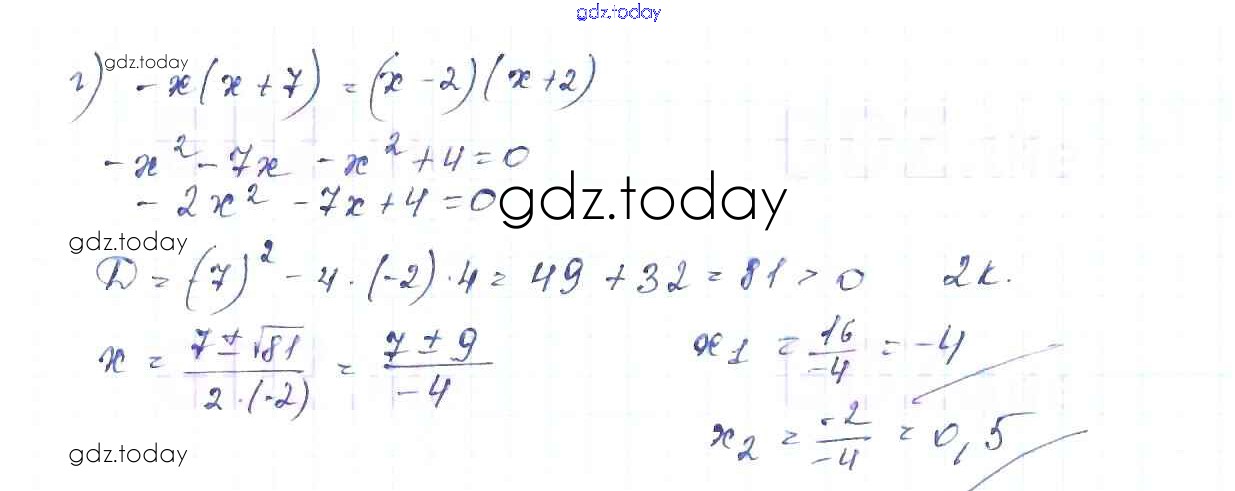 gdz.today
gdz.today
г) - x(x+7) = (x-2)(x+2)
- x² - 7x - x² + 4 = 0
- 2x² - 7x + 4 = 0
gdz.today
gdz.today
D = (-7)² - 4·(-2)·4 = 49 + 32 = 81 > 0 2к.
x = (7 ± √81)/(2·(-2)) = (7 ± 9)/(-4) x₁ = 16/(-4) = -4
x₂ = -2/-4 = 0,5
gdz.today